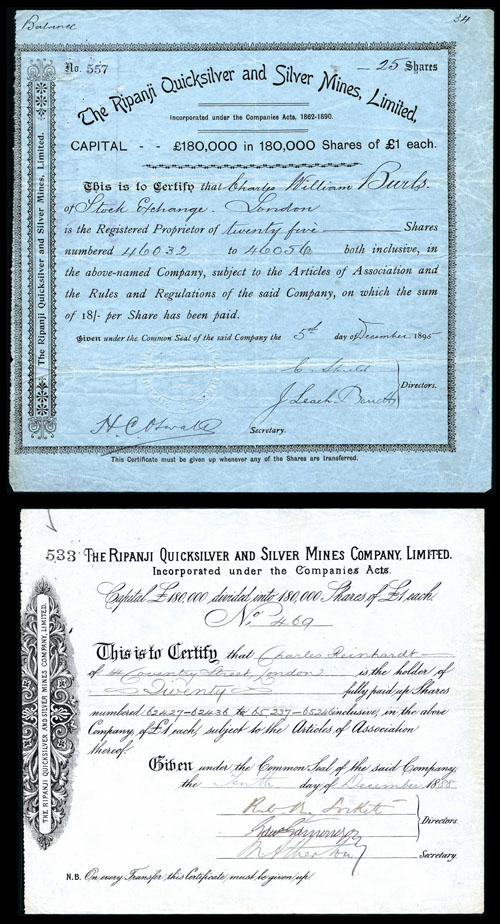 Balance 34
No. 557 — 25 Shares
The Ripanji Quicksilver and Silver Mines, Limited,
Incorporated under the Companies Acts, 1862-1890.
CAPITAL - - £180,000 in 180,000 Shares of £1 each.
This is to Certify that Charles William Burls.
of Stock Exchange. London
is the Registered Proprietor of twenty five Shares
numbered 46032 to 46056 both inclusive, in
the above-named Company, subject to the Articles of Association and
the Rules and Regulations of the said Company, on which the sum
of 18/- per Share has been paid.
Given under the Common Seal of the said Company the 5th day of December 1895
Directors.
J Leach
H. C.
Secretary.
This Certificate must be given up whenever any of the Shares are transferred.
The Ripanji Quicksilver and Silver Mines, Limited.
533 THE RIPANJI QUICKSILVER AND SILVER MINES COMPANY, LIMITED.
Incorporated under the Companies Acts.
Capital £180,000, divided into 180,000 Shares of £1 each.
No 469
This is to Certify that Charles Reinhardt
of Coventry Street, London is the holder of
Twenty fully paid up Shares
numbered 62427-62436 65237-65246 inclusive, in the above
Company, of £1 each, subject to the Articles of Association
thereof.
Given under the Common Seal of the said Company,
the Tenth day of December 1888
Directors
Secretary.
N.B. On every Transfer this Certificate must be given up.
THE RIPANJI QUICKSILVER AND SILVER MINES COMPANY, LIMITED.